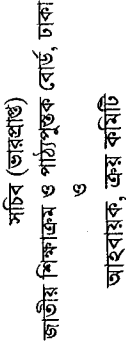 সচিব (ভারপ্রাপ্ত)
জাতীয় শিক্ষাক্রম ও পাঠ্যপুস্তক বোর্ড, ঢাকা
ও
আহবায়ক, ক্রয় কমিটি